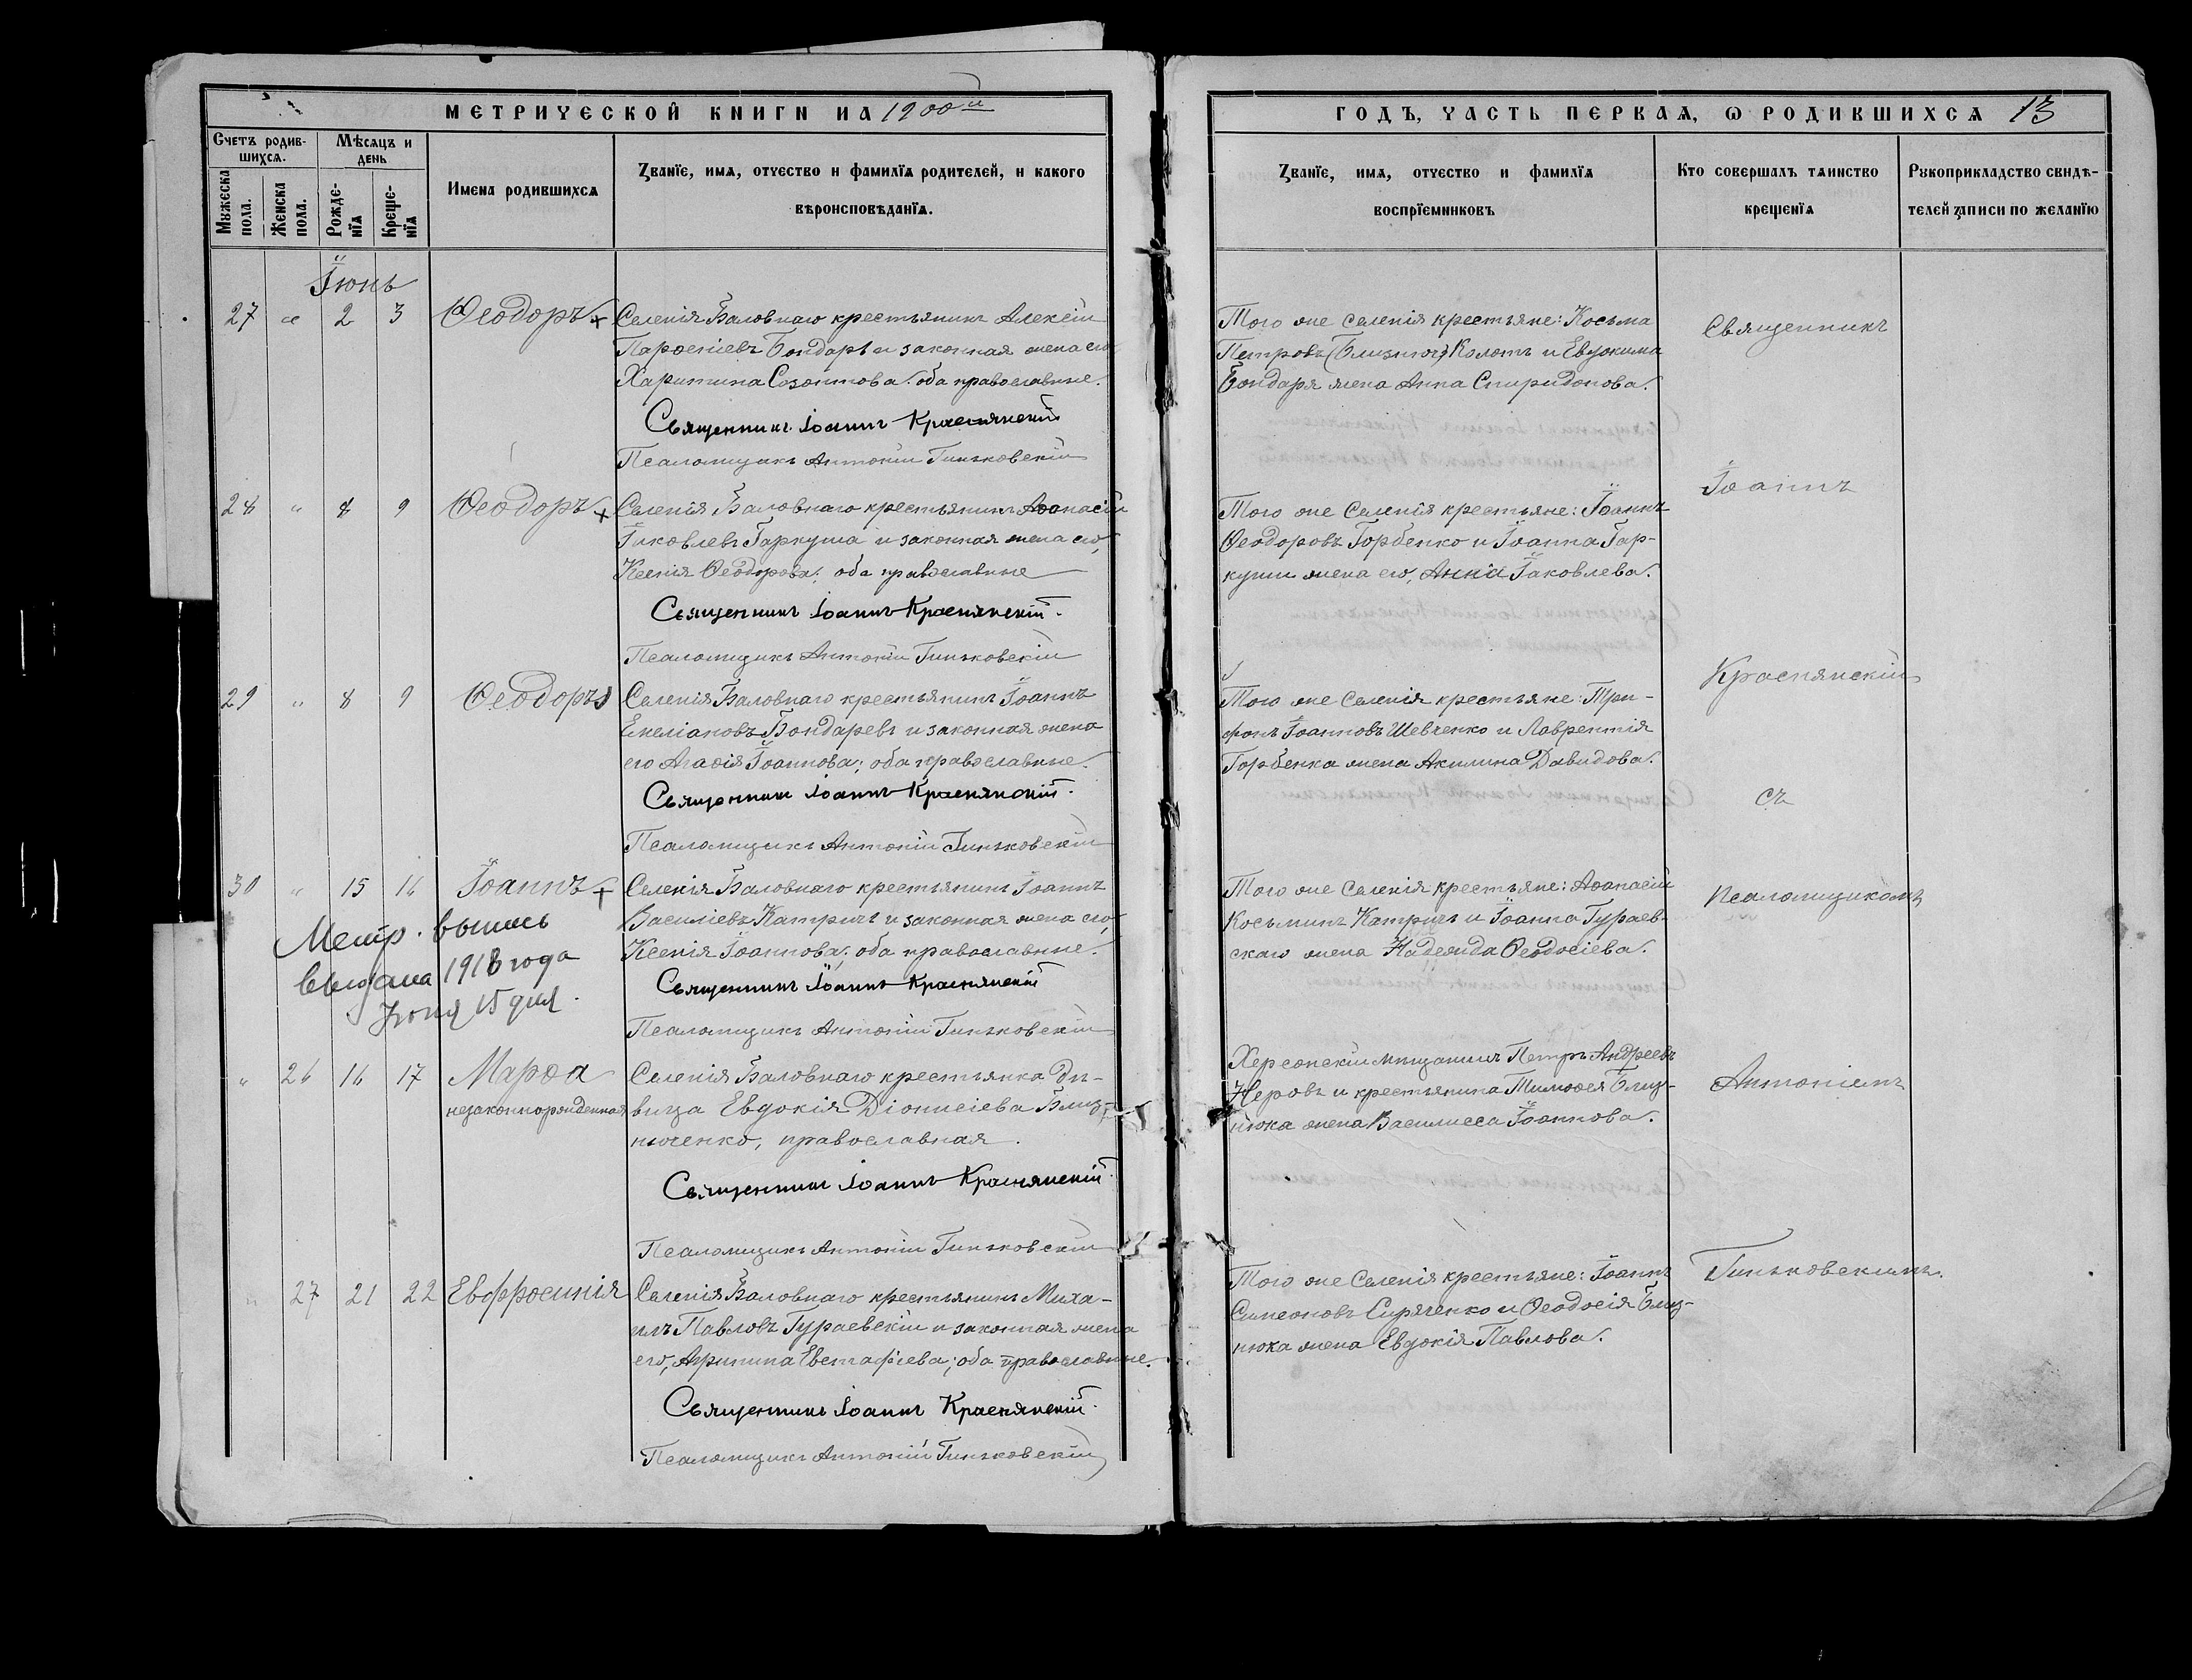 МЕТРИЧЕСКОЙ КНИГИ НА 1900й
Счетъ родив-
шихся.
Мѣсяцъ и
день
Мужеска
пола.
Женска
пола.
Рожде-
нїя
Креще-
нїя
Имена родившихся
Званїе, имя, отчество и фамилїя родителей, и какого
вѣроисповѣданїя.
Іюнь
27 " 2 3 Ѳеодоръ + Селенія Баловнаго крестьянинъ Алексій
Парѳеніевъ Бондарь и законная жена его
Харитина Созонтова; оба православные.
Священникъ Іоаннъ Краснянскій
Псаломщикъ Антоній Гиньковскій
28 " 8 9 Ѳеодоръ + Селенія Баловнаго крестьянинъ Аѳанасій
Іяковлевъ Гаркуша и законная жена его,
Ксенія Ѳеодорова; оба православные
Священникъ Іоаннъ Краснянскій.
Псаломщикъ Антоній Гиньковскій
29 " 8 9 Ѳеодоръ Селенія Баловнаго крестьянинъ Іоаннъ
Емеліановъ Бондаревъ и законная жена
его Агаѳія Іоаннова; оба православные.
Священникъ Іоаннъ Краснянскій.
Псаломщикъ Антоній Гиньковскій
30 " 15 16 Іоаннъ + Селенія Баловнаго крестьянинъ Іоаннъ
Василіевъ Катричъ и законная жена его,
Ксенія Іоаннова; оба православные.
Метр. выпись
выдана 1918 года
Іюня 15 дня.
Священникъ Іоаннъ Краснянскій
Псаломщикъ Антоній Гиньковскій
" 26 16 17 Марѳа Селенія Баловнаго крестьянка дѣ-
незаконнорожденная вица Евдокія Діонисіева Близ-
нюченко, православная.
Священникъ Іоаннъ Краснянскій.
Псаломщикъ Антоній Гиньковскій
" 27 21 22 Евфросинія Селенія Баловнаго крестьянинъ Миха-
илъ Павловъ Гураевскій и законная жена
его, Агрипина Евстафіева; оба православные.
Священникъ Іоаннъ Краснянскій.
Псаломщикъ Антоній Гиньковскій
ГОДЪ, ЧАСТЬ ПЕРВАЯ, Ѡ РОДИВШИХСЯ 13
Званїе, имя, отчество и фамилїя
воспрїемниковъ
Кто совершалъ таинство
крещенїя
Рукоприкладство свидѣ-
телей записи по желанїю
Того же селенія крестьяне: Косьма
Петровъ (Близнюч) Колотъ и Евдокима
Бондаря жена Анна Спиридонова.
Того же Селенія крестьяне: Іоаннъ
Ѳеодоровъ Горбенко и Іоанна Гар-
куши жена его, Анна Іаковлева.
Того же Селенія крестьяне: Три-
фонъ Іоанновъ Шевченко и Лаврентія
Горбенка жена Акилина Давидова.
Того же Селенія крестьяне: Аѳанасій
Косьминъ Катричъ и Іоанна Гураев-
скаго жена Надежда Ѳеодосіева.
Херсонскій мѣщанинъ Петръ Андреевъ
Неровъ и крестьянина Тимоѳея Близ-
нюка жена Василисса Іоаннова.
Того же Селенія крестьяне: Іоаннъ
Симеоновъ Сиряченко и Ѳеодосія Близ-
нюка жена Евдокія Павлова.
Священникъ
Іоаннъ
Краснянскій
съ
псаломщикомъ
Антоніемъ
Гиньковскимъ.